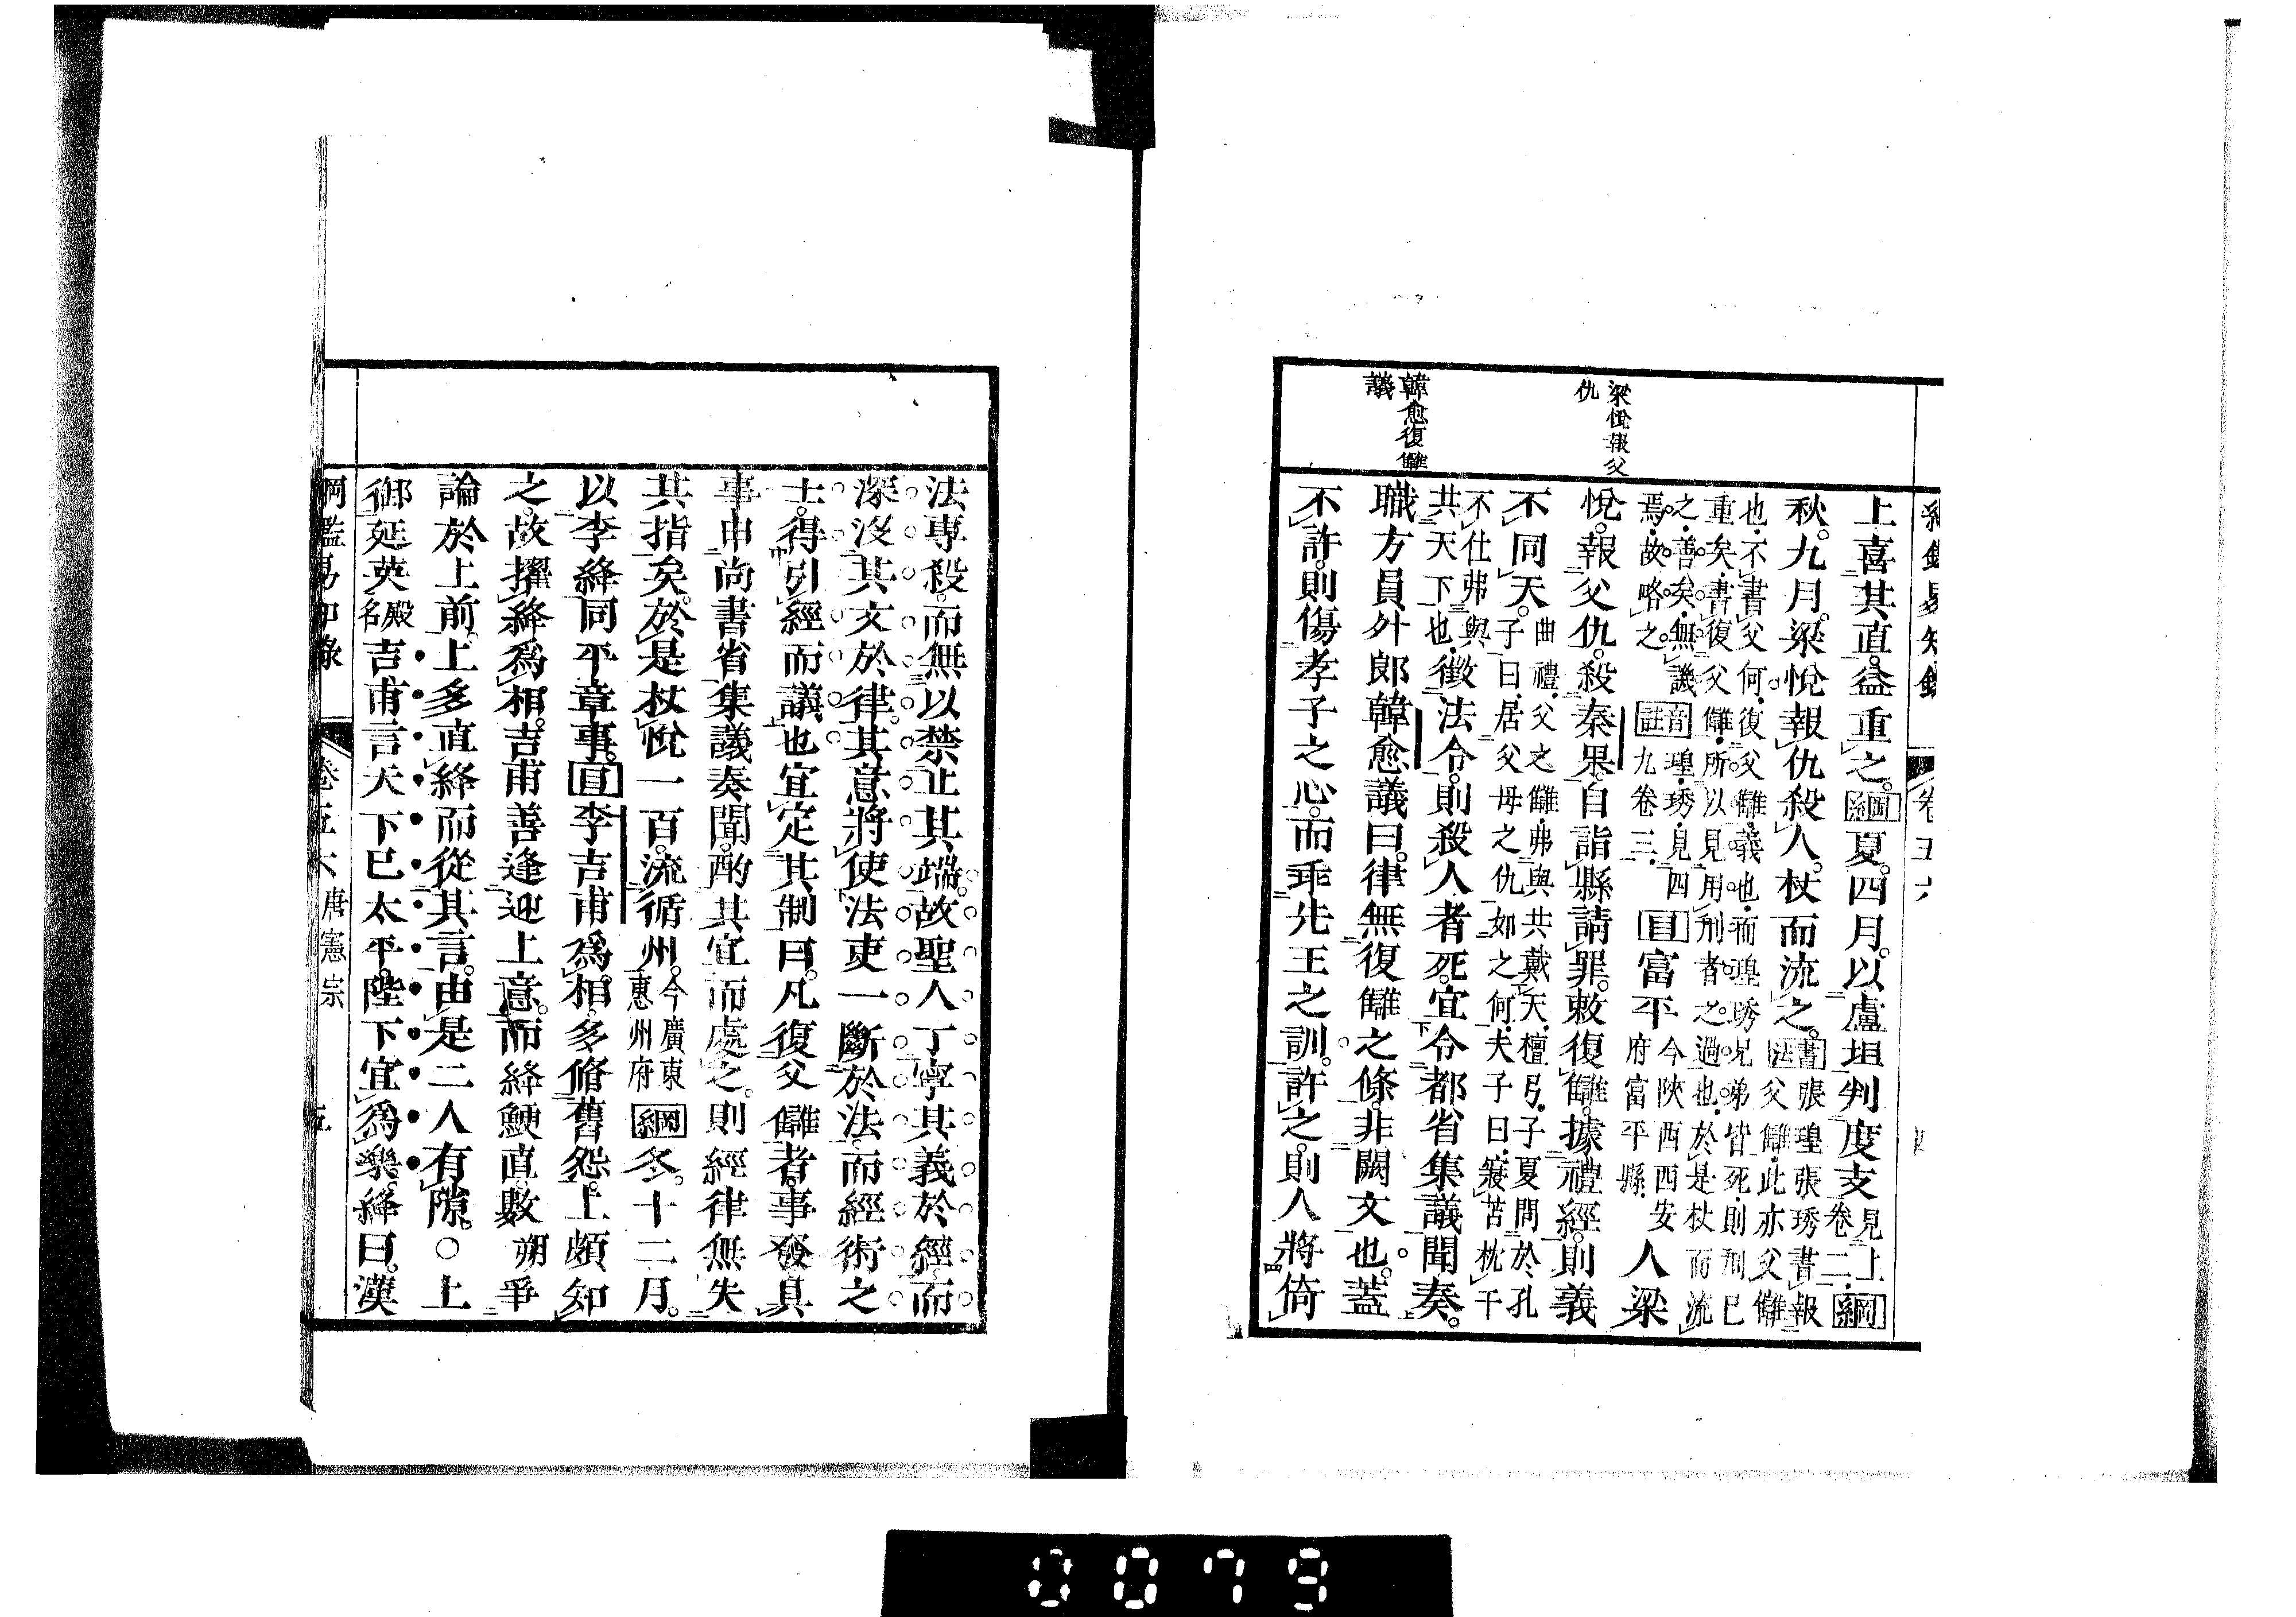 卷五六
梁悅報父
仇
韓愈復讎
議
上喜其直。益重之。綱夏。四月。以盧坦判度支見上
卷二綱
秋。九月。梁悅報仇殺人。杖而流之。書張瑝張琇書報
法父讎此亦父讎
也不書父何復父讎義也而瑝琇兄弟皆死則刑已
重矣書復父讎所以見用刑者之過也於是杖而流
之善矣無譏音瑝琇見四
焉故略之註九卷三目富平今陝西西安
府富平縣人梁
悅。報父仇。殺秦果。自詣縣請罪。敕復讎。據禮經。則義
不同天。曲禮父之讎弗與共戴天檀弓子夏問於孔
子曰居父母之仇如之何夫子曰寢苫枕干
不仕弗與
共天下也徵法令。則殺人者死。宜令都省集議聞奏。
職方員外郎韓愈議曰。律無復讎之條。非闕文也。蓋
不許。則傷孝子之心。而乖先王之訓。許之。則人將倚
法專殺。而無以禁止其端。故聖人丁寧其義於經。而
深沒其文於律。其意將使法吏一斷於法。而經術之
士。得引經而議也宜定其制曰。凡復父讎者。事發具
事申尚書省。集議奏聞。酌其宜而處之。則經律無失
其指矣。於是杖悅一百。流循州。今廣東
惠州府綱冬。十二月。
以李絳同平章事。目李吉甫爲相。多脩舊怨。上頗知
之。故擢絳爲相。吉甫善逢迎上意。而絳鯁直。數朔爭
論於上前。上多直絳而從其言。由是二人有隙。○上
御延英殿
名吉甫言天下已太平。陛下宜爲樂。絳曰。漢
唐憲宗
0079